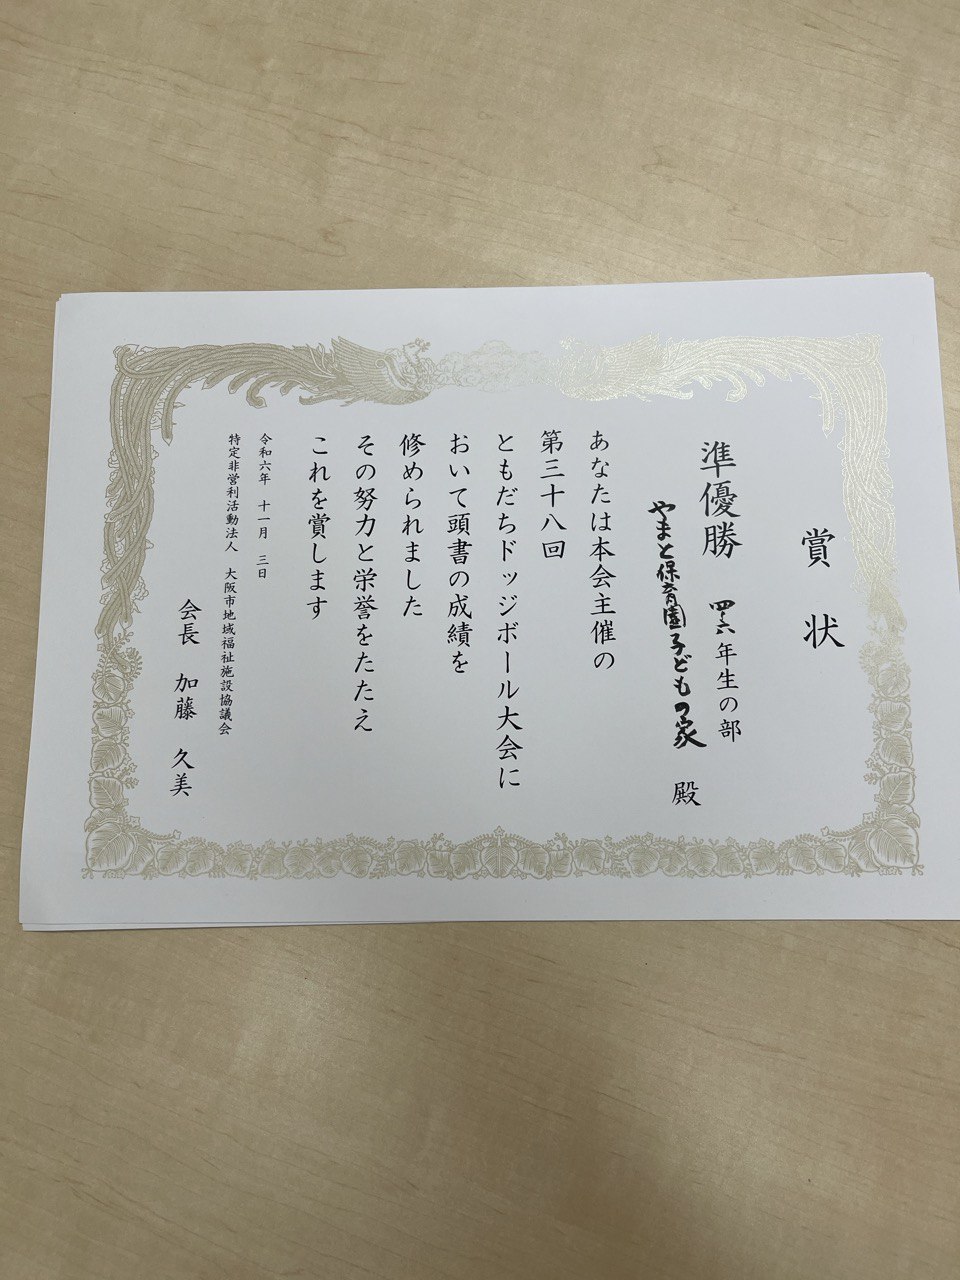 賞状
準優勝 四・六年生の部
やまと保育園子どもの家 殿
あなたは本会主催の
第三十八回
ともだちドッジボール大会に
おいて頭書の成績を
修められました
その努力と栄誉をたたえ
これを賞します
令和六年 十一月 三日
特定非営利活動法人 大阪市地域福祉施設協議会
会長 加藤 久美